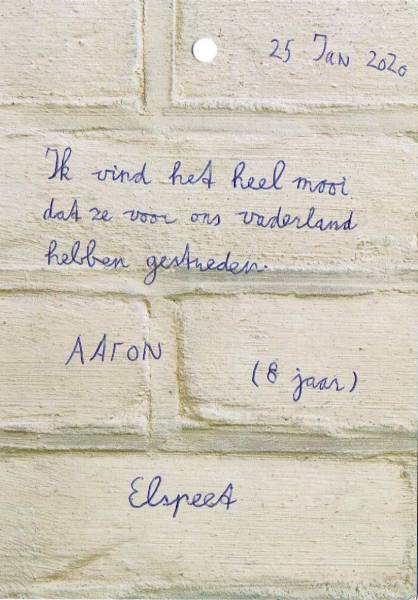 25 Jan 2020
Ik vind het heel mooi
dat ze voor ons vaderland
hebben gestreden.
AAron
(8 jaar)
Elspeet